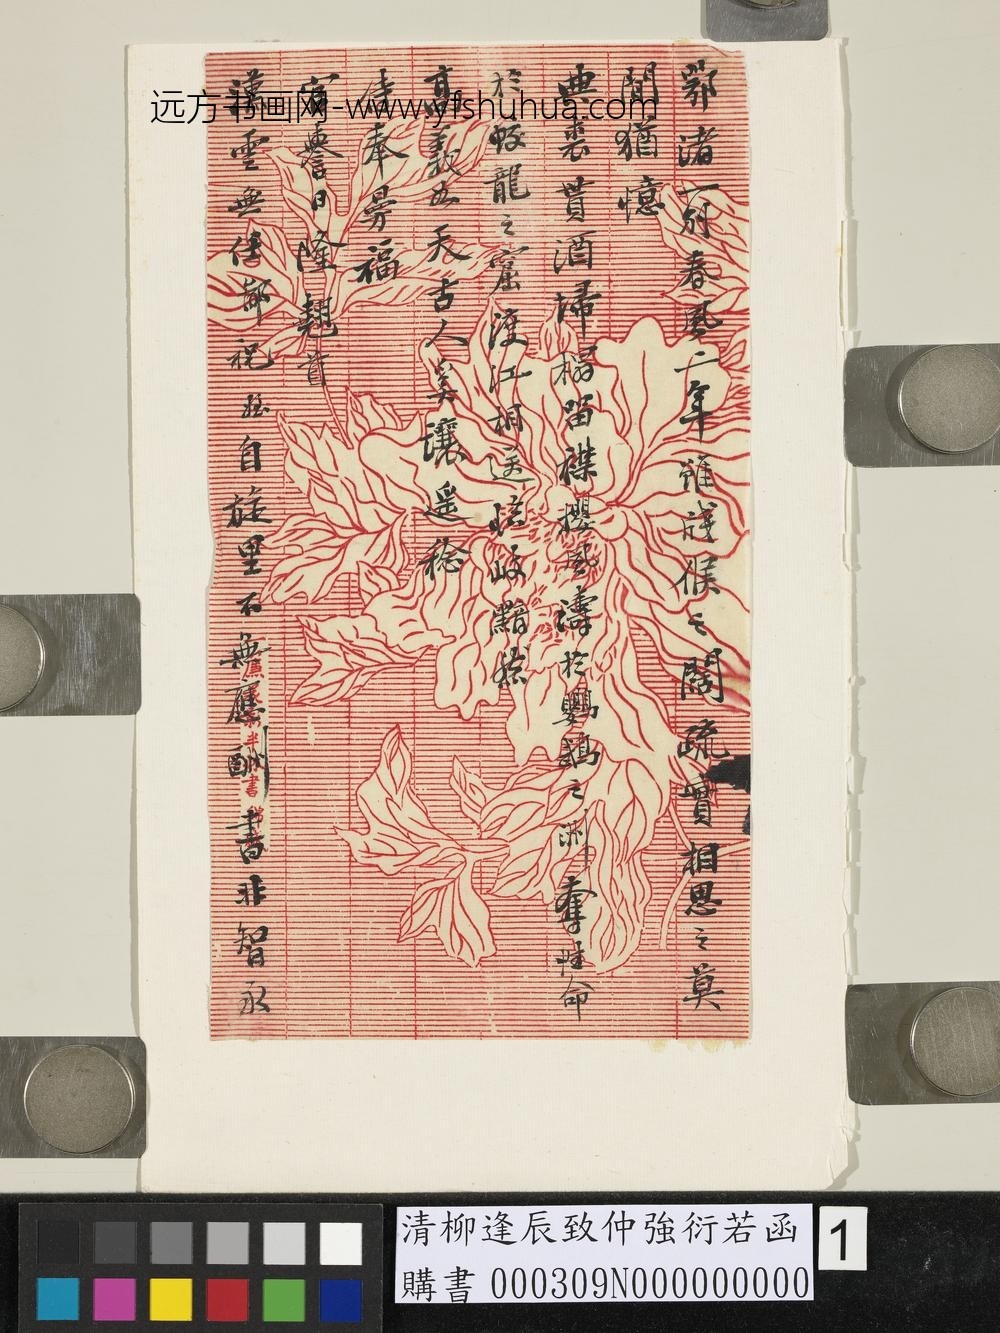 鄂渚一別春風二年雖牋候之闊疏實相思之莫
間猶憶
典裘貰酒掃榻留襟攖風濤於鸚鵡之洲奪性命
於蛟龍之窟渡江相送臨歧黯然
高義出天古人奚讓遙稔
侍奉曼福
宦譽日隆翹首
雲無任
祝弦自旋里不無應酬書非智永
远方书画网-www.yfshuhua.com
清柳逢辰致仲強衍若函
購書 000309N000000000
1